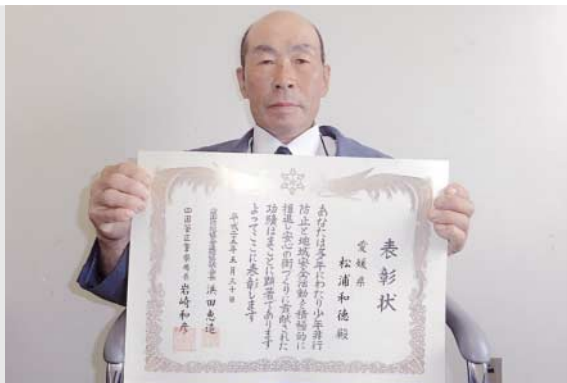 表彰状
愛媛県
松浦和德殿
あなたは多年にわたり少年非行
防止と地域安全活動を積極的に
推進し安心の街づくりに貢献された
功績はまことに顕著であります
よってここに表彰します
平成二十五年五月三十日
浜田恵造
四国管区警察局長 岩崎和彦